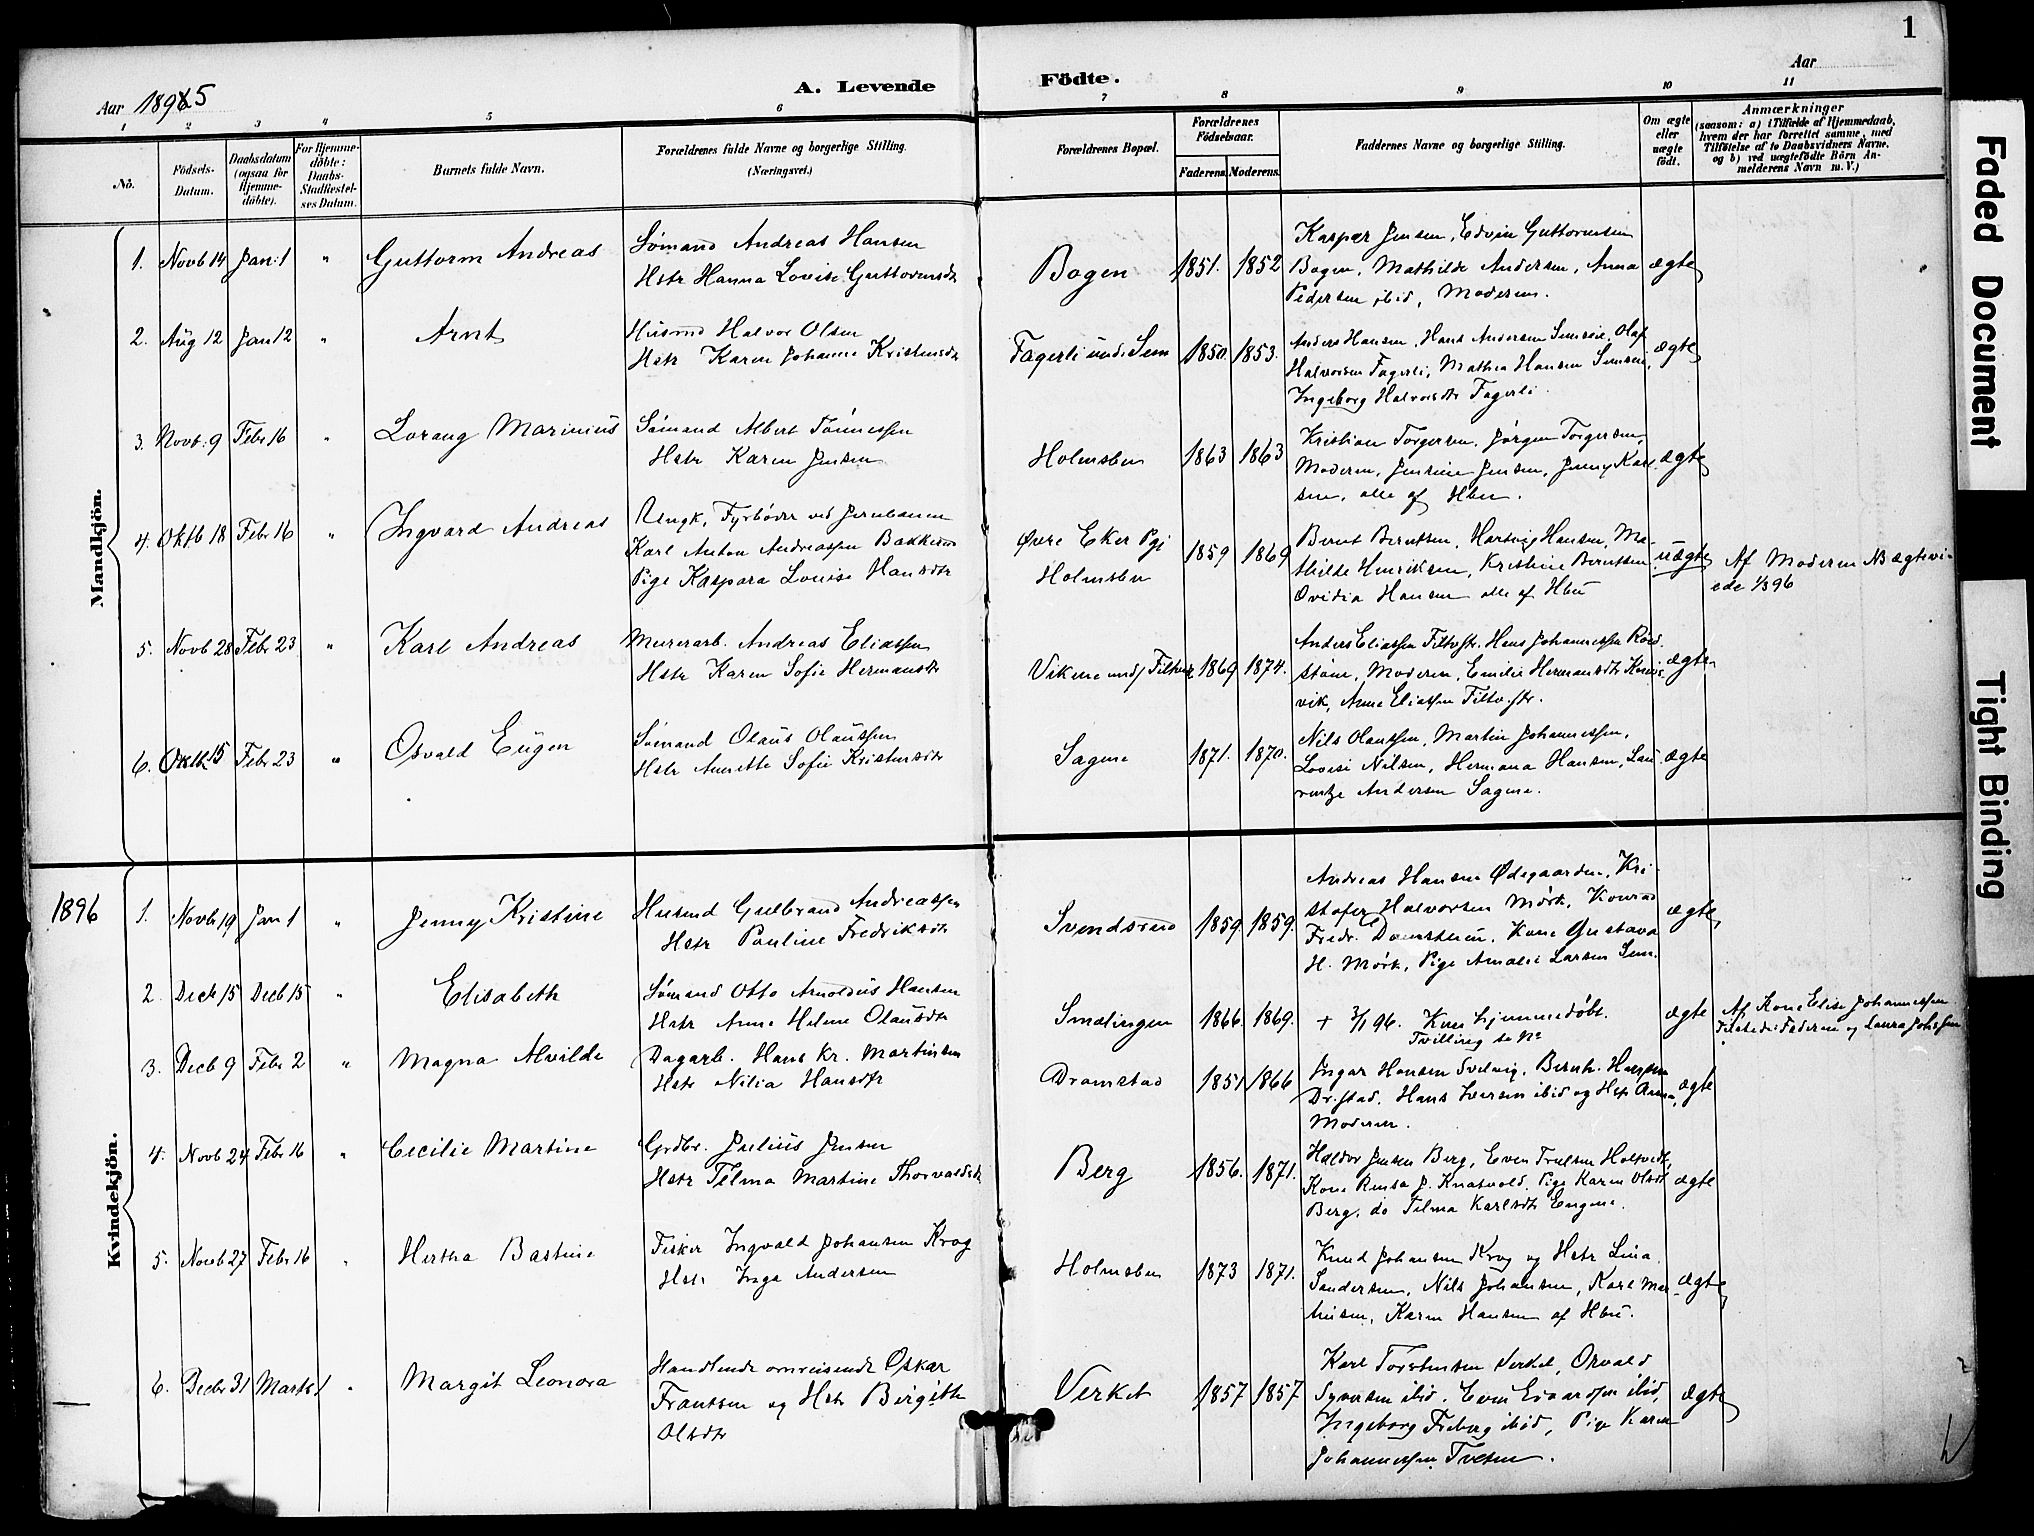 1
A. Levende Födte.
Aar 1895
Aar
1 2 3 4 5 6 7 8 9 10 11
No.
Födsels-Datum.
Daabsdatum (ogsaa for Hjemmedöbte).
For Hjemmedöbte: Daabs-Stadfæstelses Datum.
Barnets fulde Navn.
Forældrenes fulde Navne og borgerlige Stilling. (Næringsvei.)
Forældrenes Bopæl.
Forældrenes Födselsaar.
Faderens. Moderens.
Faddernes Navne og borgerlige Stilling.
Om ægte eller uægte födt.
Anmærkninger
(saasom: a) i Tilfælde af Hjemmedaab, hvem der har forrettet samme, med Tilföielse af to Daabsvidners Navne, og b) ved uægtefödte Börn Anmelderens Navn m.V.)
Mandkjön.
1. Novb 14 Jan: 1 " Guttorm Andreas
Sømand Andreas Hansen
Hstr Hanna Lovise Guttormsdtr
Bogen 1851. 1852
Kasper Jensen, Edvin Guttormsen
Bogen, Mathilde Andersen, Anna
Pedersen ibid, Moderen.
ægte
2. Aug 12 Jan 12 " Arnt
Husmd Halvor Olsen
Hstr Karen Johanne Kristensdtr
Fagerli und. Sem 1850. 1853.
Anders Hansen, Hans Andersen, Olaf
Halvorsen Fagerli, Mathea Hansen
Ingeborg Halvorsdtr Fagerli
ægte
3. Novb. 9 Febr 16 " Lorang Marinius
Sømand Albert Tönnessen
Hstr Karen Jensen
Holmsbu 1863 1863
Kristian Torgersen, Jörgen Torgersen,
Moderen, Jensine Jensen, Jenny Karl-
sen, alle af Hbu.
ægte
4. Oktb 18 Febr 16 " Ingvard Andreas
Ungk, Fyrböder ved Jernbanen
Karl Anton Andreassen Bakkerud
Pige Kaspara Louise Hansdtr
Øvre Eker Pgj
Holmsbu 1859 1869
Bernt Berntsen, Hartvig Hansen, Ma-
thilde Henriksen, Kristine Berntsen
Ovidia Hansen alle af Hbu
uægte
Af Moderen NB ægtevi-
ede 1/3 96
5. Novb 28 Febr 23 " Karl Andreas
Murerarb. Andreas Eliassen
Hstr Karen Sofie Hermansdtr
Vikene und/ Filtvet 1869 1874.
Anders Eliassen Filtv.str. Hans Johannessen Röd-
stöen, Moderen, Emilie Hermansdtr
vik, Anne Eliassen Filtv.str.
ægte
6. Oktb 15 Febr 23 " Osvald Eugen
Sömand Olaus Olaussen
Hstr Annette Sofie Kristensdtr
Sagene 1871. 1870.
Nils Olaussen, Martin Johannessen,
Lovise Nilsen, Hermana Hansen, Lau-
rentze Andersen Sagene.
ægte
1896
Kvindekjön.
1. Novb 19 Jan 1 " Jenny Kristine
Husmd Gulbrand Andreassen
Hstr Pauline Fredriksdtr
Svendsrud 1859 1859.
Andreas Hansen Ødegaarden, Kri-
stofer Halvorsen Mörk, Konrad
Fredr. Kone Gustava
H. Mörk, Pige Amalie Larsen Sem.
ægte
2. Decb 15 Decb 15 " Elisabeth
Sömand Otto Arnoldus Hansen
Hstr Anne Helene Olausdtr
Smalingen 1866. 1869.
+ 3/1 96. Kun hjemmedöbt.
Tvilling se No
ægte
Af Kone Elise Johannessen
Tilstede: Faderen og Laura Johssen
3. Decb 9 Febr 2 " Magna Alvilde
Dagarb. Hans Kr. Martinsen
Hstr Nilia Hansdtr
Dramstad 1851 1866
Ingar Hansen Solvig, Bernh. Hansen
Dr.stad. Hans Iversen ibid og Hstr Anna,
Moderen.
ægte
4. Novb 24 Febr 16 " Cecilie Martine
Grdbr. Julius Jensen
Hstr Telma Martine Thorvaldsdtr
Berg 1856. 1871.
Haldor Jensen Berg, Even Trulsen Holtvedt,
Kone Rensa J. Knatvold. Pige Karen Olsdtr
Berg, do Telma Karlsdtr Engene.
ægte
5. Novb 27 Febr 16 " Hertha Bastine
Fisker Ingvald Johansen Krog
Hstr Inga Andersen
Holmsbu 1873 1871.
Knud Johansen Krog og Hstr Lina
Sandersen, Nils Johansen, Karl Mar-
tinsen, Karen Hansen af Hbu.
ægte
6. Decbr 31 Marts 1 " Margit Leonora
Handlende omreisende Oskar
Frantsen og Hstr Birgith
Olsdtr
Verket 1857 1857
Karl Torstensen Verket, Osvald
Syversen ibid. Even Edvardsen ibid,
Ingeborg Freberg ibid, Pige Karen
Johannessen Tveten.
ægte
Faded Document
Tight Binding